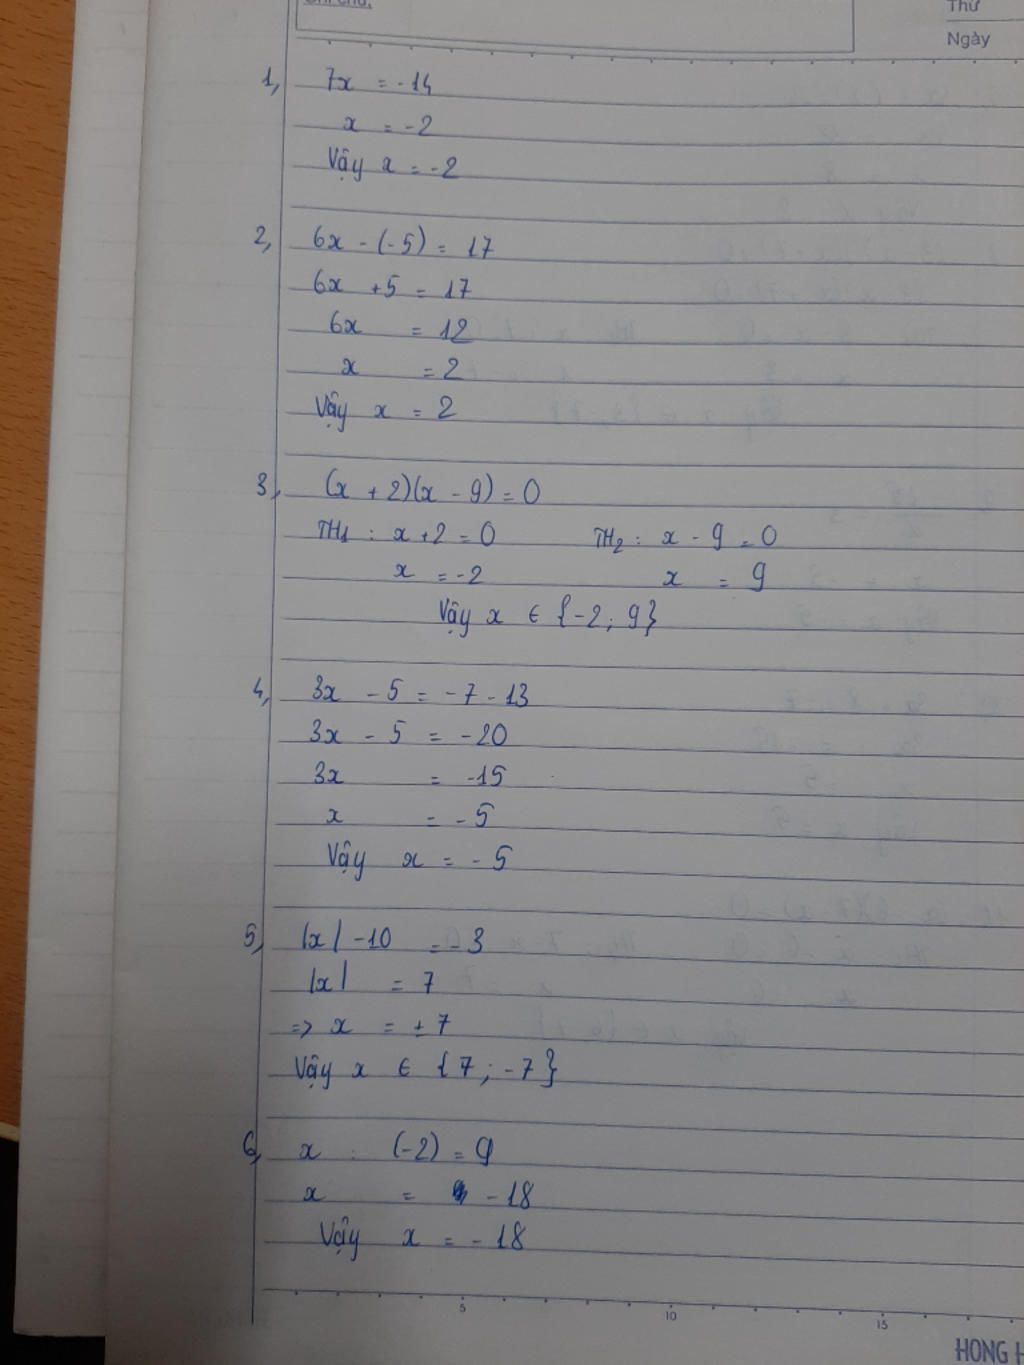 Ghi chú:
Thứ
Ngày
1, 7x = -14
x = -2
Vậy x = -2
2, 6x - (-5) = 17
6x + 5 = 17
6x = 12
x = 2
Vậy x = 2
3, (x + 2)(x - 9) = 0
TH1 : x + 2 = 0 TH2 : x - 9 = 0
x = -2 x = 9
Vậy x ∈ {-2 ; 9}
4, 3x - 5 = -7 - 13
3x - 5 = -20
3x = -15
x = -5
Vậy x = -5
5, |x| - 10 = -3
|x| = 7
=> x = ±7
Vậy x ∈ {7 ; -7}
6, x : (-2) = 9
x = -18
Vậy x = -18
5 10 15
HONG